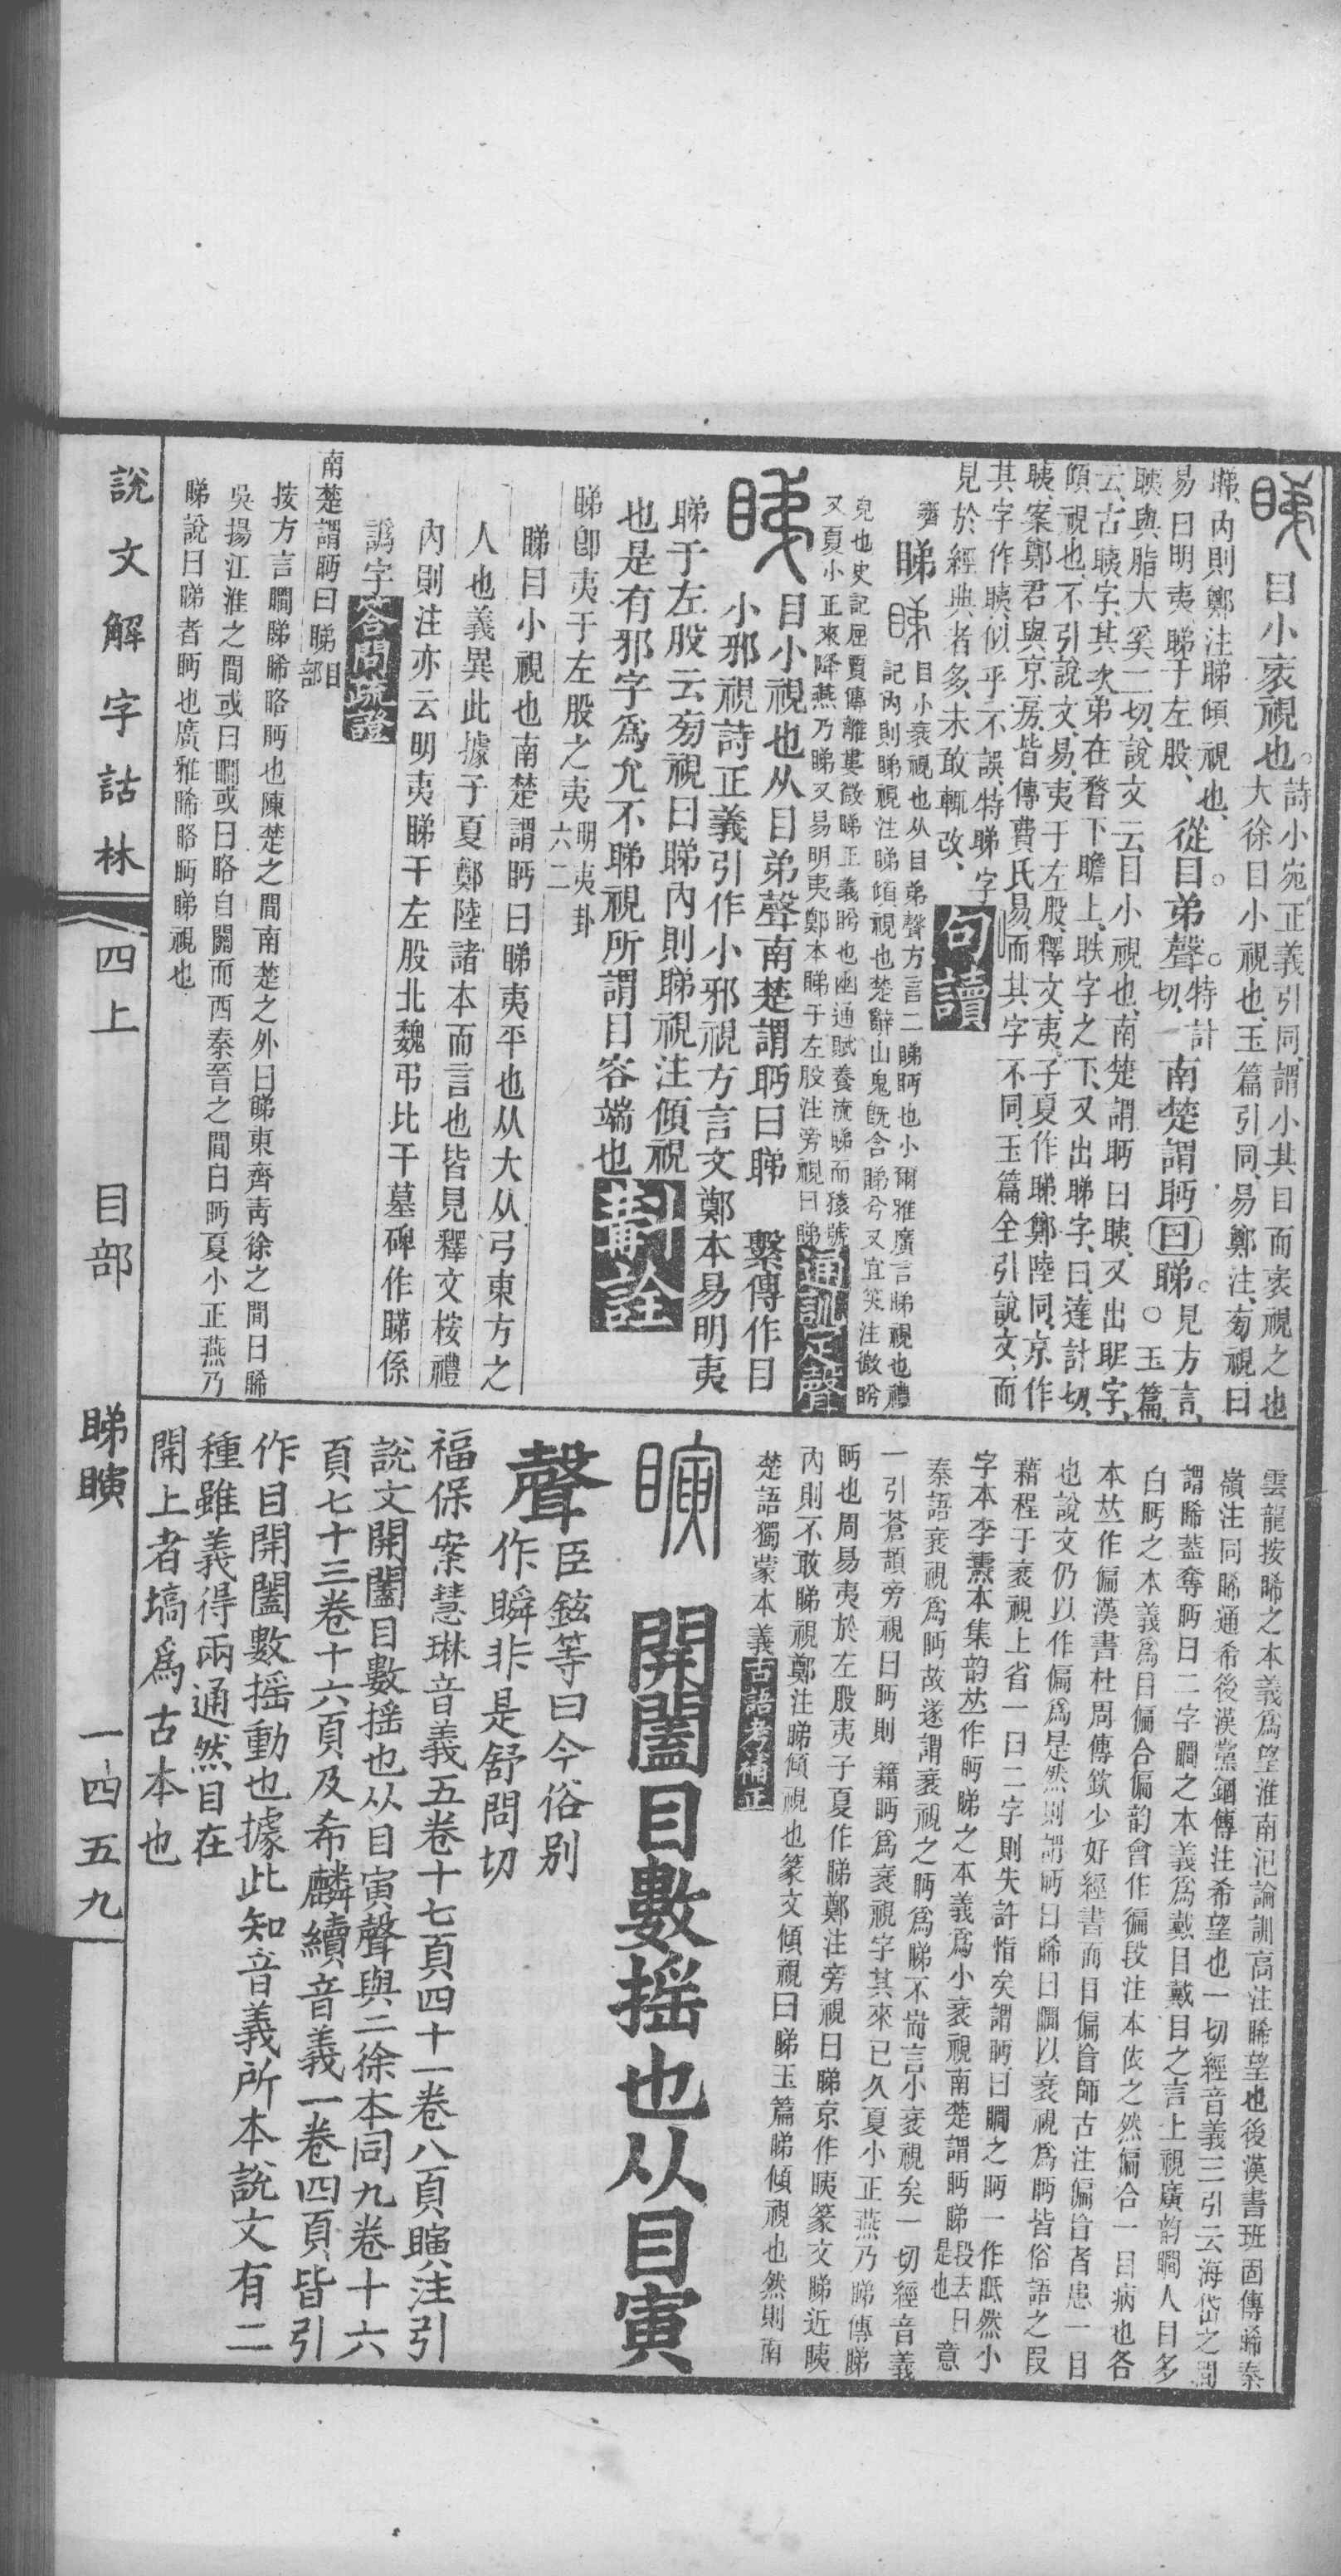 目小衺視也。詩小宛正義引同、謂小其目而衺視之也
大徐目小視也、玉篇引同、易鄭注、旁視曰
睇、內則鄭注睇傾視也、從目弟聲。特計切、南楚謂眄曰睇。見方言、○玉篇、
易曰明夷、睇于左股、
眱與脂大奚二切、說文云目小視也、南楚謂眄曰眱、又出眤字、
云、古眱字、其次弟在瞀下瞻上、眣字之下、又出睇字、曰達計切、
傾視也、不引說文、易、夷于左股、釋文、夷、子夏作睇、鄭陸同、京作
眱、案鄭君與京房、皆傳費氏易、而其字不同、玉篇全引說文、而
其字作眱、似乎不誤、特睇字
見於經典者多、未敢輒改、
句讀
睇 目小衺視也从目弟聲方言二睇眄也小爾雅廣言睇視也禮
記內則睇視注睇傾視也楚辭山鬼旣含睇兮又宜笑注微盼
皃也史記屈賈傳離婁微睇正義眄也幽通賦養流睇而猿號
又夏小正來降燕乃睇又易明夷鄭本睇于左股注旁視曰睇
通訓定聲
目小視也从目弟聲南楚謂眄曰睇 繫傳作目
小邪視詩正義引作小邪視方言文鄭本易明夷
睇于左股云旁視曰睇內則睇視注傾視
也是有邪字爲允不睇視所謂目容端也
斠詮
睇卽夷于左股之夷明夷卦六二
睇曰小視也南楚謂眄曰睇夷平也从大从弓東方之
人也義異此據子夏鄭陸諸本而言也皆見釋文桉禮
內則注亦云明夷睇于左股北魏弔比干墓碑作睇係
譌字
答問疏證
南楚謂眄曰睇目部
按方言瞷睇睎䀩眄也陳楚之間南楚之外曰睇東齊靑徐之間曰睎
吳揚江淮之間或曰瞷或曰䀩自關而西秦晉之間曰眄夏小正燕乃
睇說曰睇者眄也廣雅睎䀩眄睇視也
雲龍按睎之本義爲望淮南氾論訓高注睎望也後漢書班固傳睎秦
嶺注同睎通希後漢黨錮傳注希望也一切經音義三引云海岱之間
謂睎蓋奪眄曰二字瞷之本義爲戴目戴目之言上視廣韵瞷人目多
白眄之本義爲目偏合偏韵會作徧段注本依之然偏合一目病也各
本竝作偏漢書杜周傳欽少好經書而目偏盲師古注偏盲者患一目
也說文仍以作偏爲是然則謂眄曰睎曰瞷以衺視爲眄皆俗語之叚
藉程于衺視上省一曰二字則失許恉矣謂眄曰瞷之眄一作䀡然小
字本李燾本集韵竝作眄睇之本義爲小衺視南楚謂眄睇段去曰是也意
秦語衺視爲眄故遂謂衺視之眄爲睇不耑言小衺視矣一切經音義
一引蒼頡旁視曰眄則 籍眄爲衺視字其來已久夏小正燕乃睇傳睇
眄也周易夷於左股夷子夏作睇鄭注旁視曰睇京作眱篆文睇近眱
內則不敢睇視鄭注睇傾視也篆文傾視曰睇玉篇睇傾視也然則南
楚語獨蒙本義
古語考補正
開闔目數搖也从目寅
聲臣鉉等曰今俗別作瞬非是舒問切
福保案慧琳音義五卷十七頁四十一卷八頁瞚注引
說文開闔目數搖也从目寅聲與二徐本同九卷十六
頁七十三卷十六頁及希麟續音義一卷四頁皆引
作目開闔數搖動也據此知音義所本說文有二
種雖義得兩通然目在
開上者塙爲古本也
說文解字詁林
四上 目部 睇瞚 一四五九